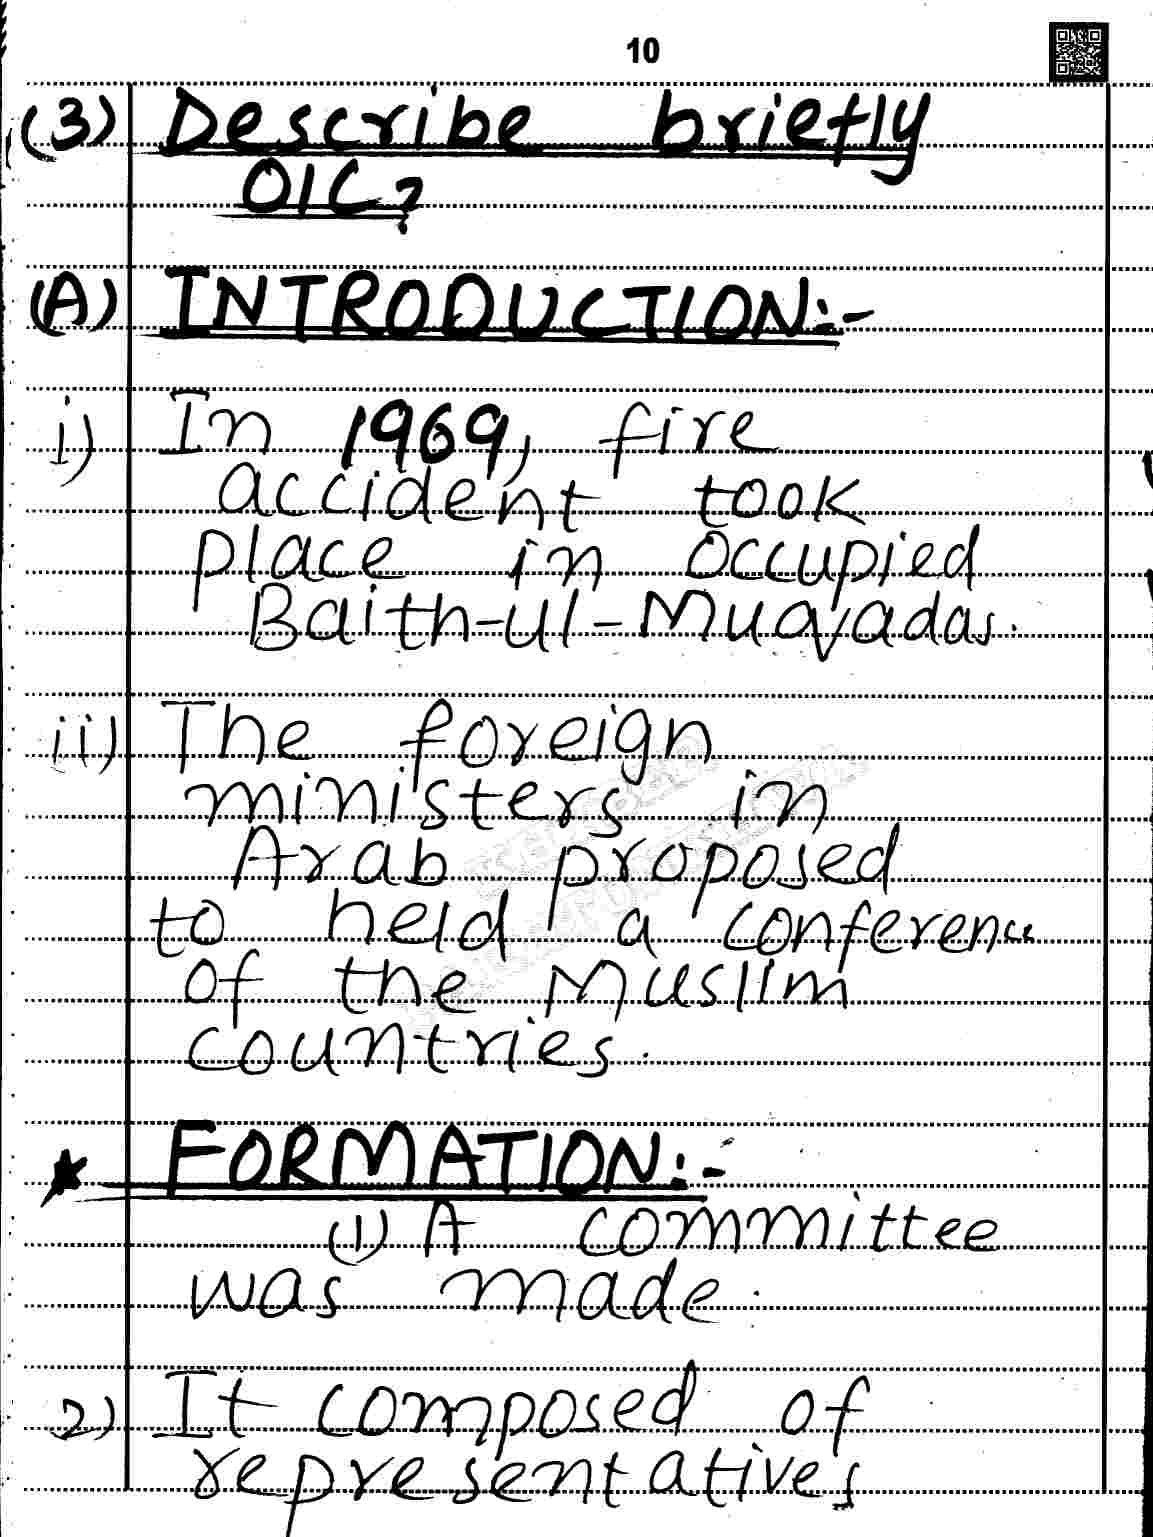 10
(3) Describe briefly
OIC?
(A) INTRODUCTION:-
i) In 1969, fire
accident took
place in occupied
Baith-ul-Muqadas.
ii) The foreign
ministers in
Arab proposed
to held a conference
of the Muslim
countries.
* FORMATION:-
(1) A committee
was made.
2) It composed of
representatives